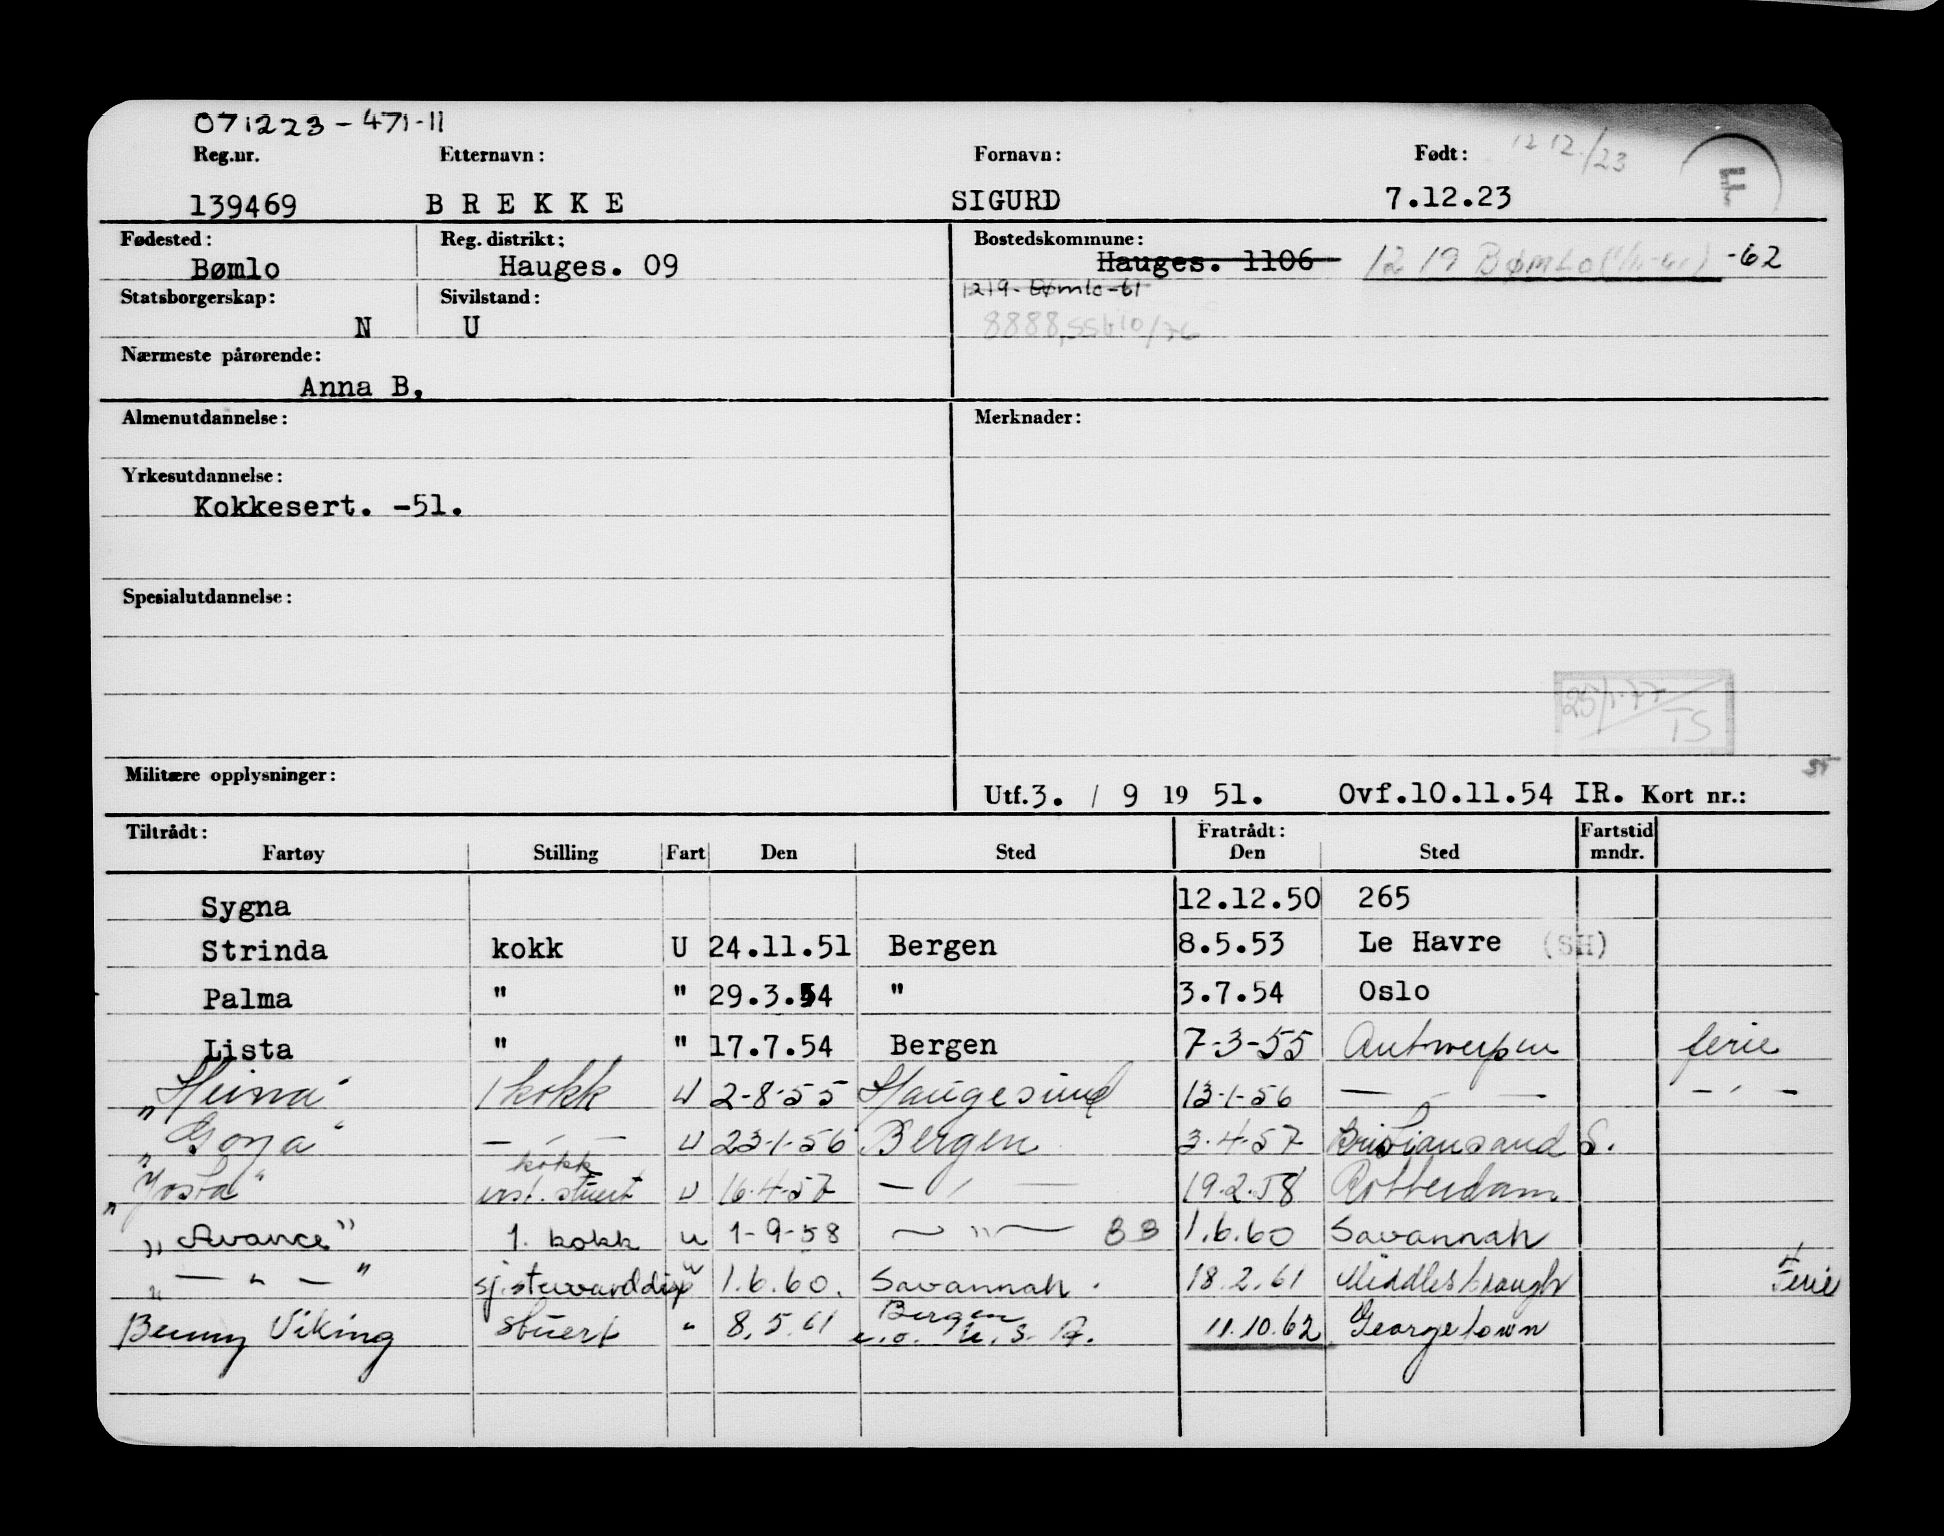 071223-471-11
Reg.nr. Etternavn: Fornavn: Født: 12 12./23 F
139469 BREKKE SIGURD 7.12.23
Fødested: Reg. distrikt: Bostedskommune:
Bømlo Hauges. 09 Hauges. 1106 1219 Bømlo -62
Statsborgerskap: Sivilstand: 1219- Bømlo-61
N U 8888,
Nærmeste pårørende:
Anna B.
Almenutdannelse: Merknader:
Yrkesutdannelse:
Kokkesert. -51.
Spesialutdannelse:
25/1-77
TS
Militære opplysninger:
Utf.3. / 9 19 51. Ovf.10.11.54 IR. Kort nr.:
Tiltrådt: Fratrådt: Fartstid
Fartøy Stilling Fart Den Sted Den Sted mndr.
Sygna 12.12.50 265
Strinda kokk U 24.11.51 Bergen 8.5.53 Le Havre (SH)
Palma " " 29.3.54 " 3.7.54 Oslo
Lista " " 17.7.54 Bergen 7-3-55 Antwerpen ferie
1 kokk U 2-8-55 Haugesund 13-1-56 — — — " —
"Goya" — " — U 23-1-56 Bergen 3.4-57 Kristiansand S.
kokk
"Josta" inst. stuert U 16.4-57 — " — 19.2.58 Rotterdam
"Avance" 1. kokk u 1-9-58 — " — BB 1.6.60 Savannah
" — " — " sj.stewarddisp " 1.6.60. Savannah. 18.2.61 Middlesbrough Ferie
Bergen
Benny Viking Stuert " 8.5.61 e.o. U.S.A. 11.10.62 Georgetown